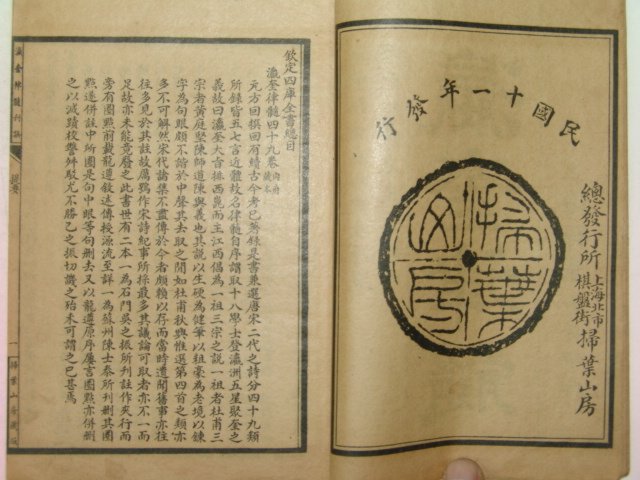 民國十一年發行
掃葉山房
總發行所 上海北市棋盤街 掃葉山房
欽定四庫全書總目
瀛奎律髓四十九卷 內府藏本
元方回撰回有續古今考已著錄是書兼選唐宋二代之詩分四十九類
所錄皆五七言近體故名律髓自序謂取十八學士登瀛洲五星聚奎之
義故曰瀛奎大旨排西崑而主江西倡為一祖三宗之說一祖者杜甫三
宗者黃庭堅陳師道陳與義也其說以生硬為健筆以粗豪為老境以鍊
字為句眼頗不諧於中聲其去取之間如杜甫秋興惟選第四首之類亦
多不可解然宋代諸集不盡傳於今者頗賴以存而當時遺聞舊事亦往
往多見於其註故厲鶚作宋詩紀事所採最多其議論可取者亦不一而
足故亦未能竟廢之此書世有二本一為石門吳之振所刊註作夾行而
旁有圈點前載龍遵敘述傳授源流至詳一為蘇州陳士泰所刊刪其圈
點遂併註中所圈是句中眼等句刪去又以龍遵原序屢言圈點亦併刪
之以滅蹟校讐舛駁尤不勝乙之振切譏之殆未可謂之已甚焉
瀛奎律髓刊誤
提要
掃葉山房